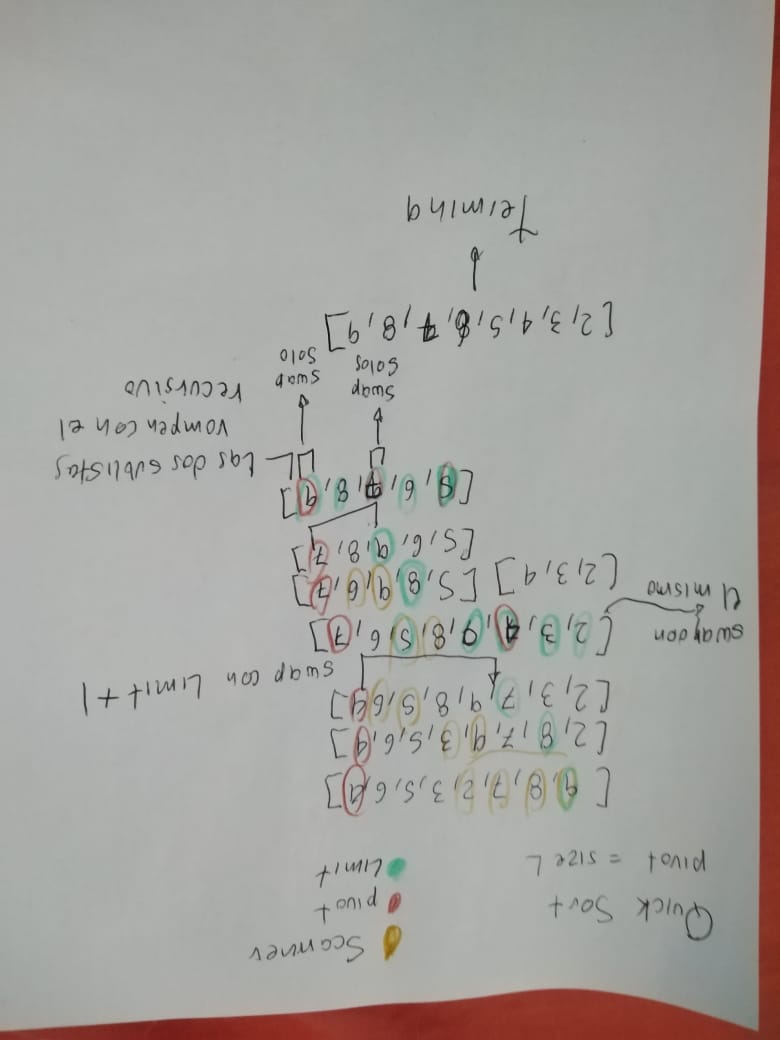 Quick Sort
pivot = size L
Scanner
pivot
Limit
[9,8,7,2,3,5,6,4]
[2,8,7,9,3,5,6,4]
[2,3,7,9,8,5,6,4]
swap con Limit + 1
[2,3,4,9,8,5,6,7]
swap con
el mismo
[2,3,4] [5,8,9,6,7]
[5,6,9,8,7]
[5,6,7,8,9]
Las dos sublistas
rompen con el
recursivo
swap
solos
swap
solo
[2,3,4,5,6,7,8,9]
Termina